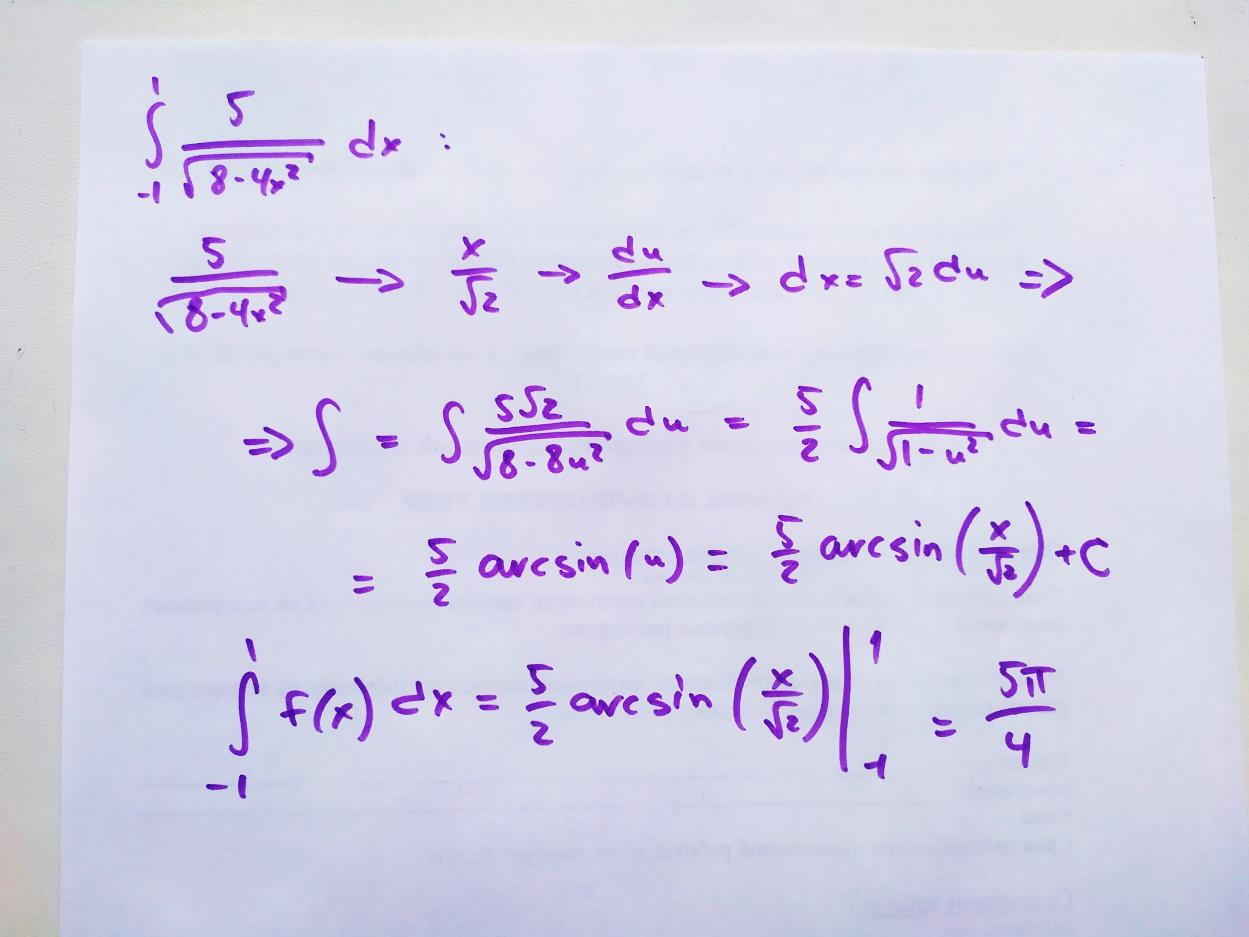 ∫_{-1}^{1} 5/√(8-4x²) dx :
5/√(8-4x²) → x/√2 → du/dx → dx = √2 du =>
=> ∫ = ∫ 5√2/√(8-8u²) du = 5/2 ∫ 1/√(1-u²) du =
= 5/2 arcsin(u) = 5/2 arcsin(x/√2) + C
∫_{-1}^{1} f(x) dx = 5/2 arcsin(x/√2) |_{-1}^{1} = 5π/4